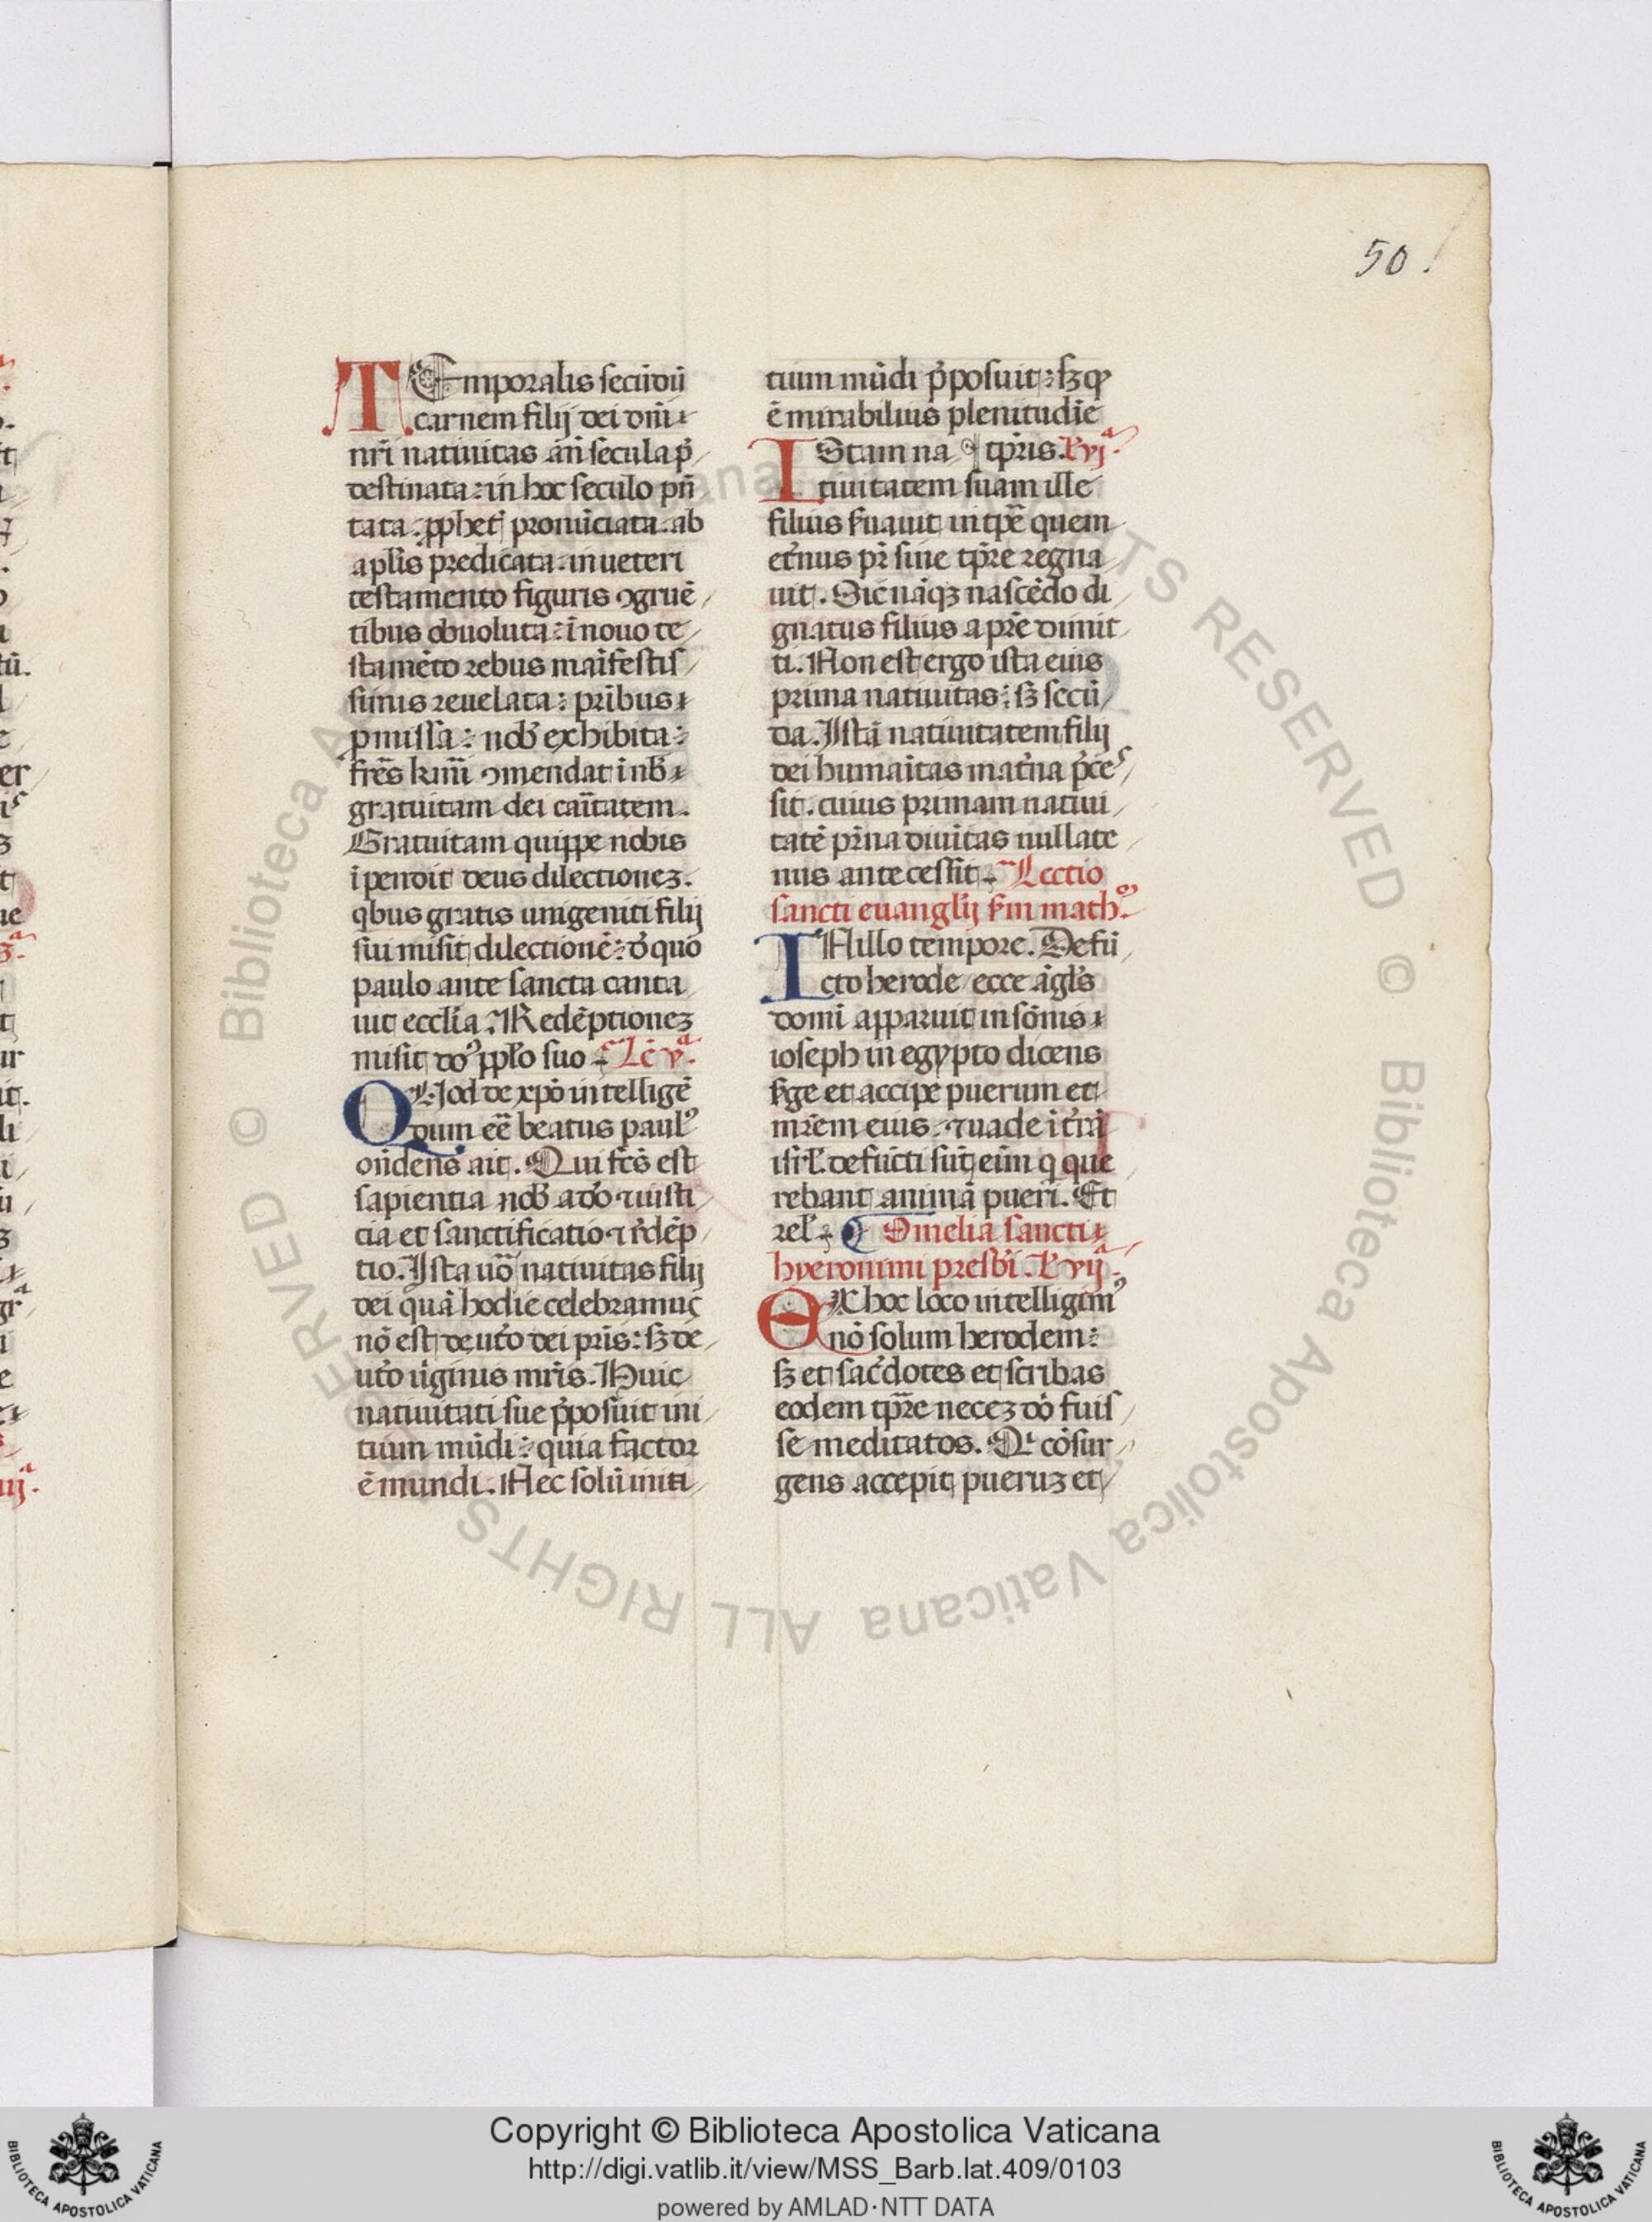 50.
TEmporalis secūdū
carnem filij dei dn̄i
nr̄i natiuitas an̄ secula p̄
destinata: in hoc seculo pn̄
tata: ꝓphet pronūciata. ab
aplīs predicata. in ueteri
testamento figuris ꝯgruē
tibus obuoluta: ī nouo te
stamēto rebus maīfestis
simis reuelata: prībus
pmissa: nob exhibita:
fr̄es km̄i ꝯmendat ī nb
gratuitam dei caritatem.
Gratuitam quippe nobis
īpendit deus dilectionez.
qbus gratis unigeniti filij
sui misit dilectionē: d̄ quo
paulo ante sancta canta
uit ecclīa. Redēptionez
misit dōs ppło suo Lc̄ vª.
QUod de xp̄o intelligē
dum eē beatus paulꝰ
on̄dens ait. Qui fc̄s est
sapientia nob a dō ⁊ iusti
cia et sanctificatio ⁊ rēdēp
tio. Ista uō natiuitas filij
dei quā hodie celebramus
nō est de utō dei pr̄is: sꝫ de
utō uīginis mr̄is. Huic
natiuitati sue p̄posuit ini
tium mūdi: quia factor
ē mundi. Nec solū initi
tium mūdi p̄posuit: sꝫ qͩ
ē mirabilius plenitudīe
IStam na ¶ tp̄ris. Lc̄ vjª.
tiuitatem suam ille
filius suauit in tp̄e quem
et̄nus pr̄ sine tp̄re regna
uit. Sic nāqꝫ nascēdo di
gnatus filius a pr̄e dimit
ti. Non est ergo ista eius
prima natiuitas: sꝫ secū
da. Istā natiuitatem filij
dei humaītas mat̄na p̄ces
sit. cuius primam natiui
tatē pr̄na diuītas nullate
nus antecessit. Lectio
sancti euanglij sm̄ math.
INillo tempore. Defū
cto herode ecce āgl̄s
domī apparuit in sōnis
ioseph in egypto dicens
Sꝰge et accipe puerum et
mr̄em eius. ⁊ uade ī tr̄ā
isrł. defūcti sūt eīm q que
rebant animā pueri. Et
rel. ¶ Omelia sancti
hyeronimi presbī. Lc̄ vijª
EX hoc loco intelligimꝰ
nō solum herodem:
sꝫ et sac̄dotes et scribas
eodem tp̄re necez dō fuis
se meditatos. Qͥ cōsur
gens accepit pueruz et
Copyright © Biblioteca Apostolica Vaticana
http://digi.vatlib.it/view/MSS_Barb.lat.409/0103
powered by AMLAD·NTT DATA
© Biblioteca Apostolica Vaticana ALL RIGHTS RESERVED
BIBLIOTECA APOSTOLICA VATICANA
BIBLIOTECA APOSTOLICA VATICANA